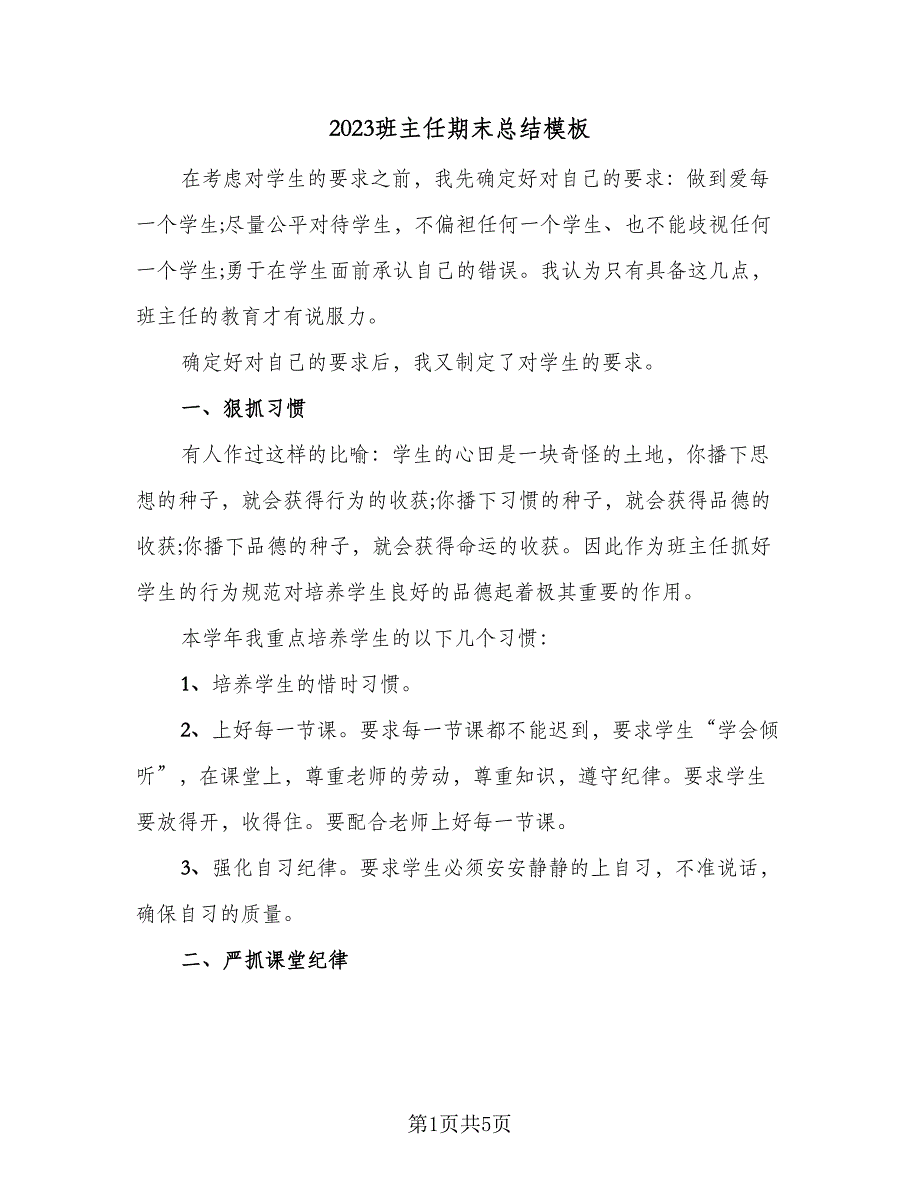 2023班主任期末总结模板
在考虑对学生的要求之前，我先确定好对自己的要求：做到爱每
一个学生;尽量公平对待学生，不偏袒任何一个学生、也不能歧视任何
一个学生;勇于在学生面前承认自己的错误。我认为只有具备这几点，
班主任的教育才有说服力。
确定好对自己的要求后，我又制定了对学生的要求。
一、狠抓习惯
有人作过这样的比喻：学生的心田是一块奇怪的土地，你播下思
想的种子，就会获得行为的收获;你播下习惯的种子，就会获得品德的
收获;你播下品德的种子，就会获得命运的收获。因此作为班主任抓好
学生的行为规范对培养学生良好的品德起着极其重要的作用。
本学年我重点培养学生的以下几个习惯：
1、培养学生的惜时习惯。
2、上好每一节课。要求每一节课都不能迟到，要求学生“学会倾
听”，在课堂上，尊重老师的劳动，尊重知识，遵守纪律。要求学生
要放得开，收得住。要配合老师上好每一节课。
3、强化自习纪律。要求学生必须安安静静的上自习，不准说话，
确保自习的质量。
二、严抓课堂纪律
第1页共5页